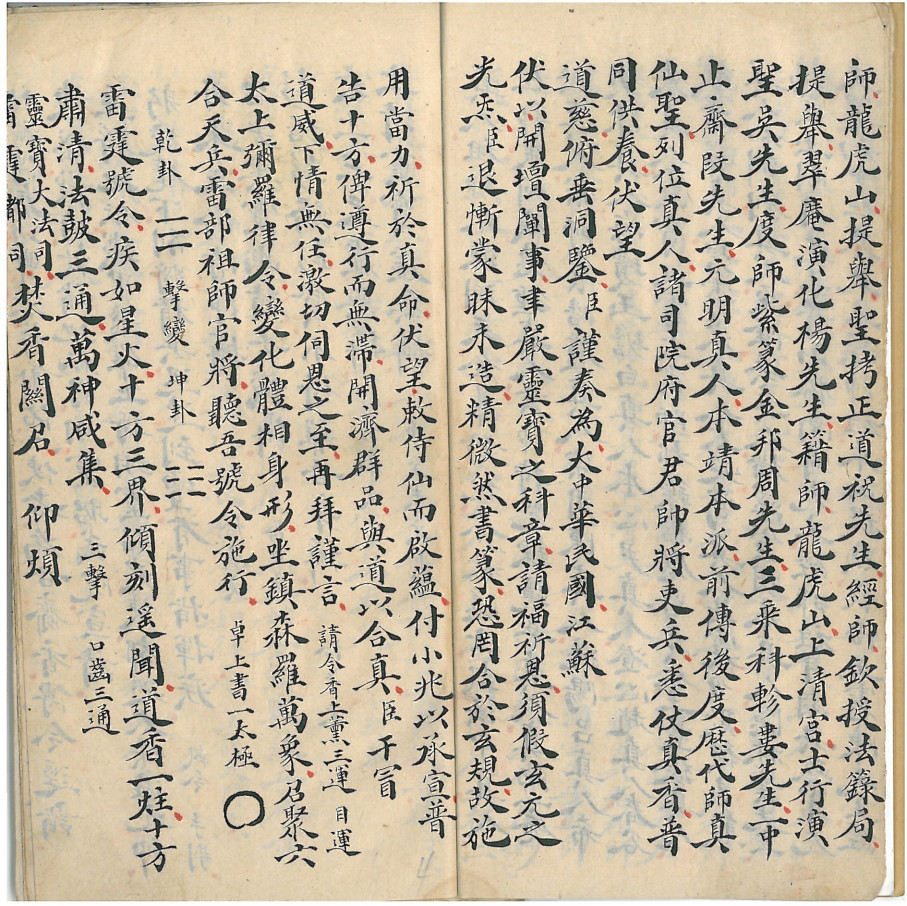 師、龍虎山提舉聖拷正道祝先生、經師欽授法籙局
提舉翠庵演化楊先生、籍師龍虎山上清宮士行演
聖吳先生、度師紫篆金邦周先生、三乘科軫婁先生、一中
止齋段先生、元明真人、本靖本派、前傳後度、歷代師真
仙聖列位真人、諸司院府官君師將吏兵、悉仗真香普
同供養、伏望
道慈俯垂洞鑒、臣謹奏為大中華民國江蘇
伏以開壇闡事、聿嚴靈寶之科章、請福祈恩、須假玄元之
光炁、臣退慚蒙昧、未造精微、然書篆恐罔合於玄規、故施
用當力祈於真命、伏望敕侍仙而啟蘊、付小兆以承宣、普
告十方、俾遵行而無滯、開濟群品、與道以合真、臣干冒
道威、下情無任激切伺恩之至、再拜謹言、 請令香上薰三運 目運
太上彌羅律令、變化體相身形、坐鎮森羅萬象、召聚六
合天兵、雷部祖師官將、聽吾號令施行 卓上書一太極 〇
乾卦 ☰ 擊變 坤卦 ☷
雷霆號令、疾如星火、十方三界、傾刻遥聞、道香一炷、十方
肅清、法鼓三通、萬神咸集、 三擊 口齒三通
靈寶大法司、焚香關召、仰煩
雷霆都司、